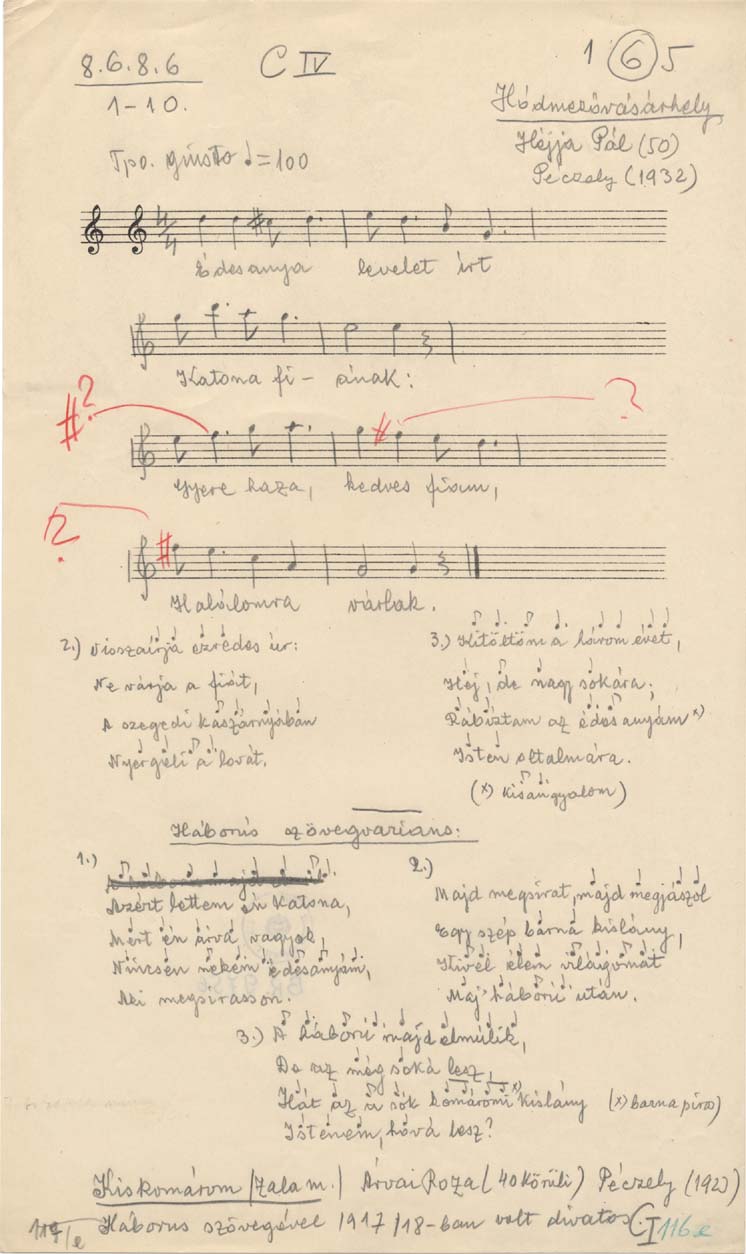 8.6.8.6 C IV 1 6 5
1-10.
Hódmezővásárhely
Tpo. giusto ♩=100
Héjja Pál (50)
Péczely (1932)
Édesanya levelet írt
Katona fi- ának:
#? ?
Gyere haza, kedves fiam,
?
Halálomra várlak.
2.) Visszaírja ezredes úr:
Ne várja a fiát,
A szegedi kaszárnyában
Nyergeli a lovát.
3.) Kitöltöm a három évet,
Héj, de nagy sokára;
Rábíztam az édesanyám x)
Isten oltalmára.
(x) kisangyalom)
Háborús szövegvariáns:
1.)
Azért lettem én katona,
Mert én árva vagyok,
Nincsen nekem édesanyám,
Aki megsirasson.
2.)
Majd megsirat, majd megjászol
Egy szép barna kislány,
Kivel élem világomat
Maj' háború után.
3.) A háború majd elmúlik,
De az még soká lesz,
Hát az a sok komáromi x) kislány (x) barna piros)
Istenem, hová lesz?
Kiskomárom (Zala m.) Árvai Roza (40 körüli) Péczely (192)
Háborus szövegével 1917/18-ban volt divatos. C.I 116 e